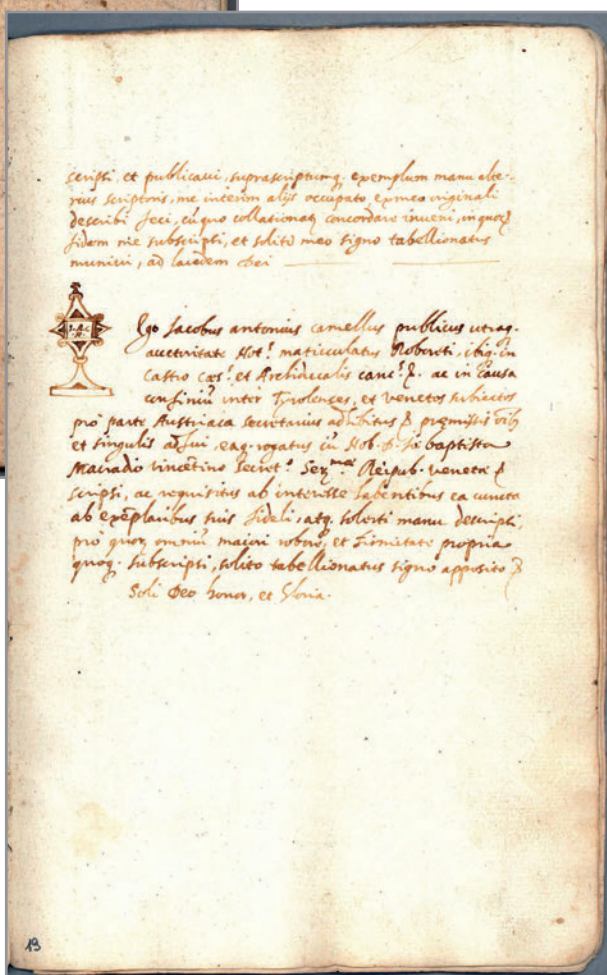 scripsi, et publicavi, suprascriptumq. exemplum manu alte-
rius scriptoris, me interim alijs occupato ex meo originali
describi feci, cũ quo collationatũ concordare inveni, in quorũ
fidem me subscripsi, et solito meo signo tabellionatus
munivi, ad laudem Dei
Ego Jacobus antonius camellus publicus utraq.
auctoritate Not.s matriculatus Roboreti, ibiq. in
castro cæs.s et Archiducalis canc.s &. ac in causa
confiniũ inter Tyrolenses, et venetos subiectos
pro parte Austriaca secretarius adhibitus & præmissis oĩb
et singulis adfui, eaq. rogatus cũ Nob. D. Jo. baptista
vincẽtino Secret.o Ser.mæ Reipub. venetæ &
scripsi, ac requisitus ab interesse habentibus ea cuncta
ab exẽplaribus suis fideli, atq. solerti manu descripsi,
pro quorũ omniũ maiori robore, et firmitate propria
quoq. subscripsi, solito tabellionatus signo apposito &
Soli Deo honor, et Gloria.
19